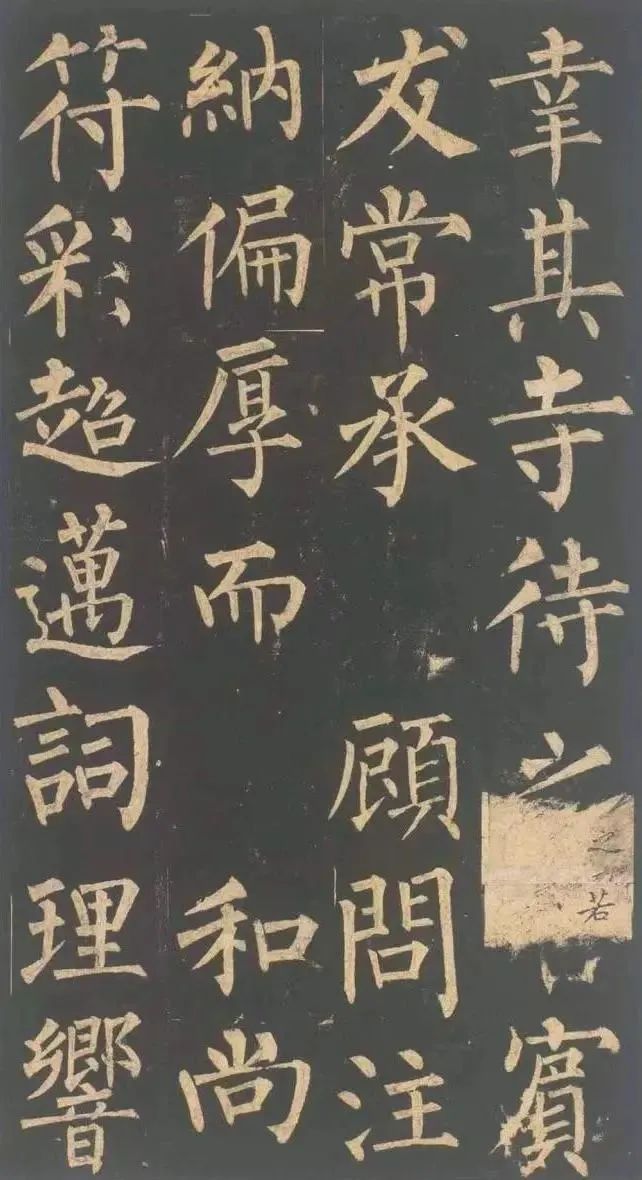 幸其寺待之若賓
友常承顧問注
納偏厚而和尚
符彩超邁詞理響
之
若